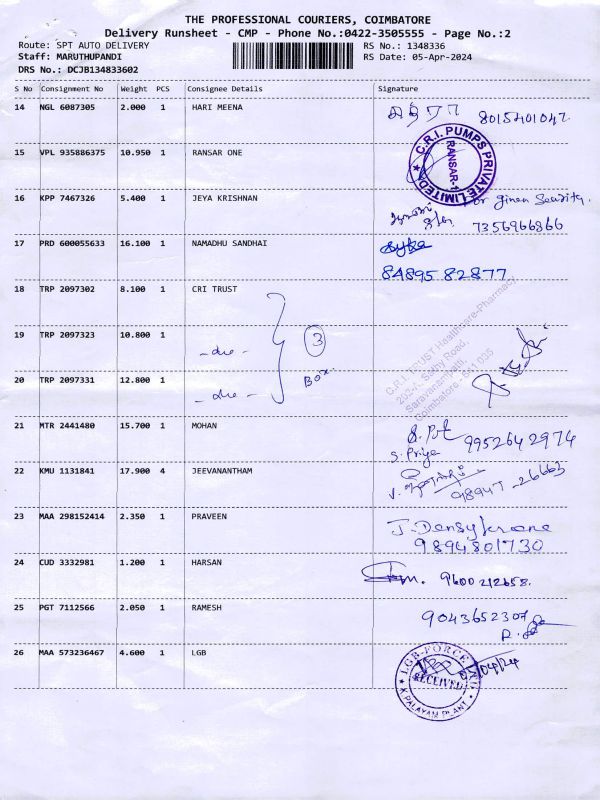 THE PROFESSIONAL COURIERS, COIMBATORE
Delivery Runsheet - CMP - Phone No.:0422-3505555 - Page No.:2
Route: SPT AUTO DELIVERY RS No.: 1348336
Staff: MARUTHUPANDI RS Date: 05-Apr-2024
DRS No.: DCJB134833602
S No Consignment No Weight PCS Consignee Details Signature
14 NGL 6087305 2.000 1 HARI MEENA 8015401047
15 VPL 935886375 10.950 1 RANSAR ONE
C.R.I. PUMPS PRIVATE LIMITED
RANSAR-1
16 KPP 7467326 5.400 1 JEYA KRISHNAN Security.
7356966866
17 PRD 600055633 16.100 1 NAMADHU SANDHAI
84895 82877
18 TRP 2097302 8.100 1 CRI TRUST
C.R.I. TRUST Healthcare-Pharmacy
Sathy Road,
Saravanampatti,
Coimbatore - 641 035
19 TRP 2097323 10.800 1
-do- 3
Box.
20 TRP 2097331 12.800 1
-do-
21 MTR 2441480 15.700 1 MOHAN
S. Priya 9952642974
22 KMU 1131841 17.900 4 JEEVANANTHAM
98947-26663
23 MAA 298152414 2.350 1 PRAVEEN
9894801730
24 CUD 3332981 1.200 1 HARSAN 9600212658.
25 PGT 7112566 2.050 1 RAMESH 9043652307
26 MAA 573236467 4.600 1 LGB
LGB-FORGE LTD
RECEIVED
K.PALAYAM PLANT
/04/24